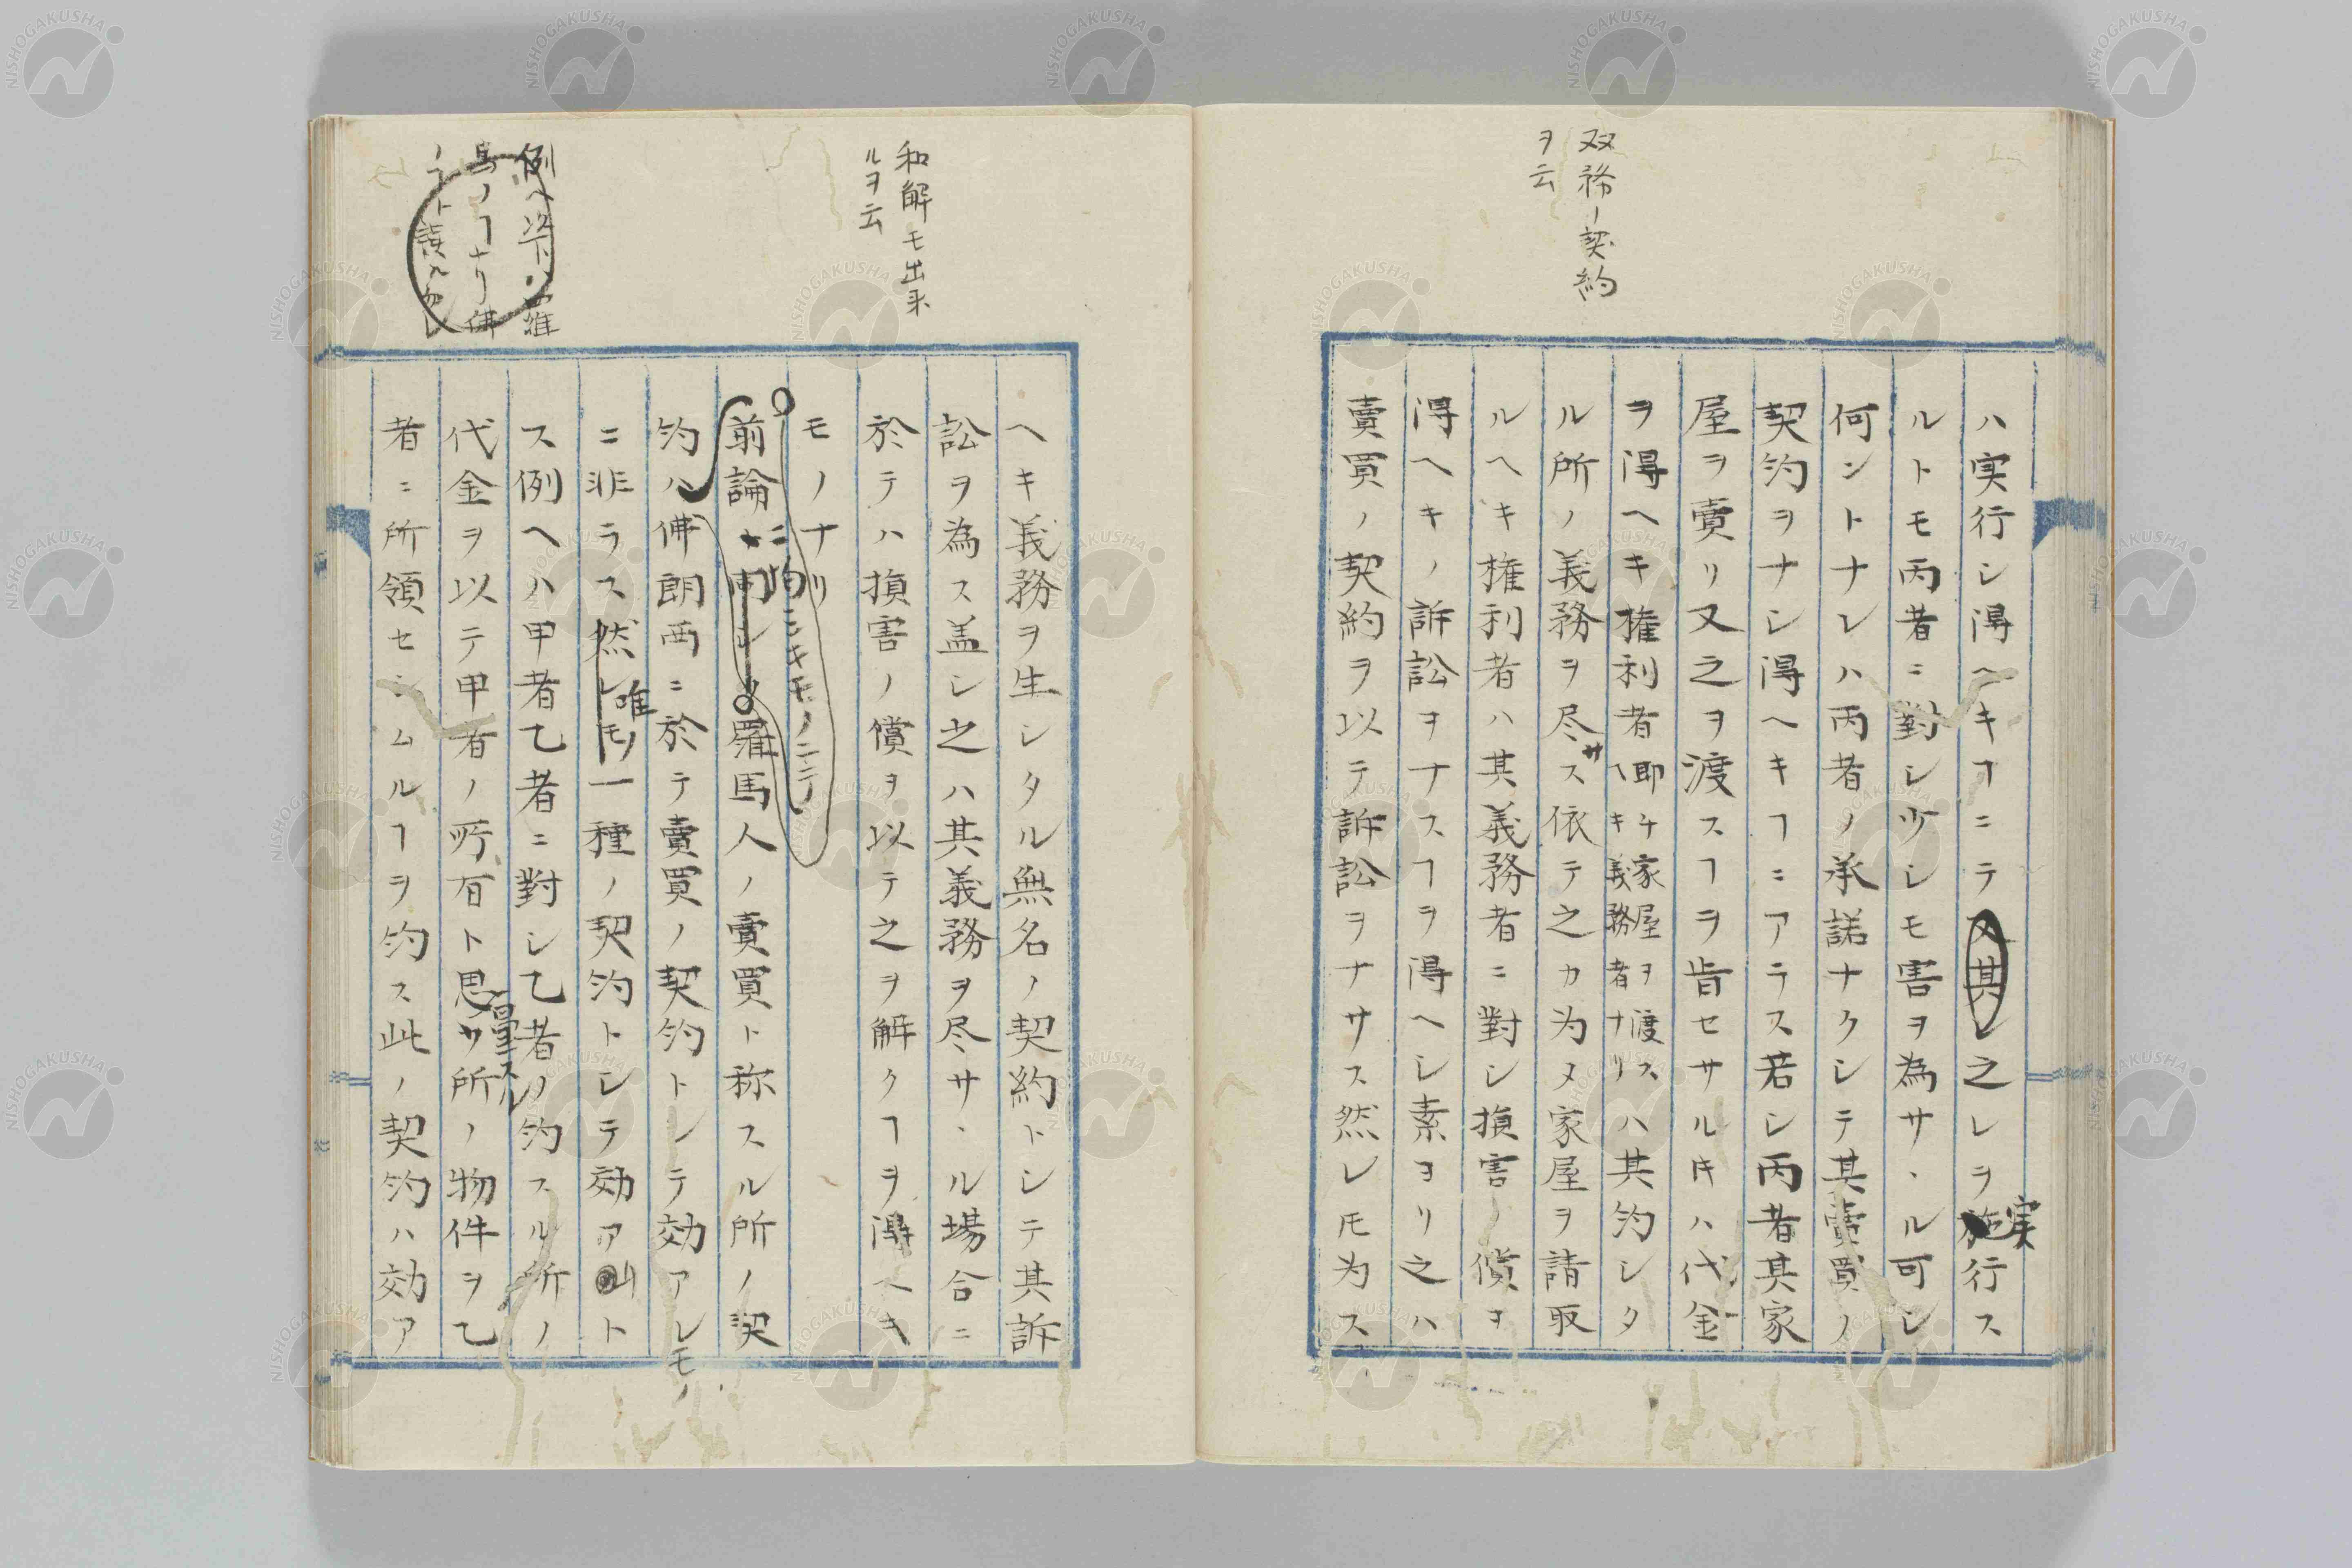 双務ノ契約
ヲ云
ハ実行シ得ヘキヿニテ又其レ之レヲ実行ス
ルトモ丙者ニ對シ少シモ害ヲ為サヽル可シ
何ントナレハ丙者ノ承諾ナクシテ其賣買ノ
契約ヲナシ得ヘキヿニアラス若シ丙者其家
屋ヲ賣リ又之ヲ渡スヿヲ肯セサル時ハ代金
ヲ得ヘキ権利者即チ家屋ヲ渡スヘキ義務者ナリハ其約シタ
ル所ノ義務ヲ尽サス依テ之カ为メ家屋ヲ請取
ルヘキ権利者ハ其義務者ニ對シ損害ノ償ヲ
得ヘキノ訴訟ヲナスヿヲ得ヘシ素ヨリ之ハ
賣買ノ契約ヲ以テ訴訟ヲナサス然レ𪜈为ス
和解モ出来
ルヲ云
例ヘ以下ハ羅
馬ノヿナリ佛
ノヿト誤ル勿レ
ヘキ義務ヲ生シタル無名ノ契約トシテ其訴
訟ヲ為ス盖シ之ハ其義務ヲ尽サヽル場合ニ
於テハ損害ノ償ヲ以テ之ヲ解クヿヲ得ヘキ
モノナリ
前論ニ均シキモノニテ羅馬人ノ賣買ト称スル所ノ契
約ハ佛朗西ニ於テ賣買ノ契約トシテ効アレモノ
ニ非ラス唯一種ノ契約トシテ効アリト
ス例ヘハ甲者乙者ニ對シ乙者ノ約スル所ノ
代金ヲ以テ甲者ノ所有ト思量スル所ノ物件ヲ乙
者ニ所領セシムルヿヲ約ス此ノ契約ハ効ア